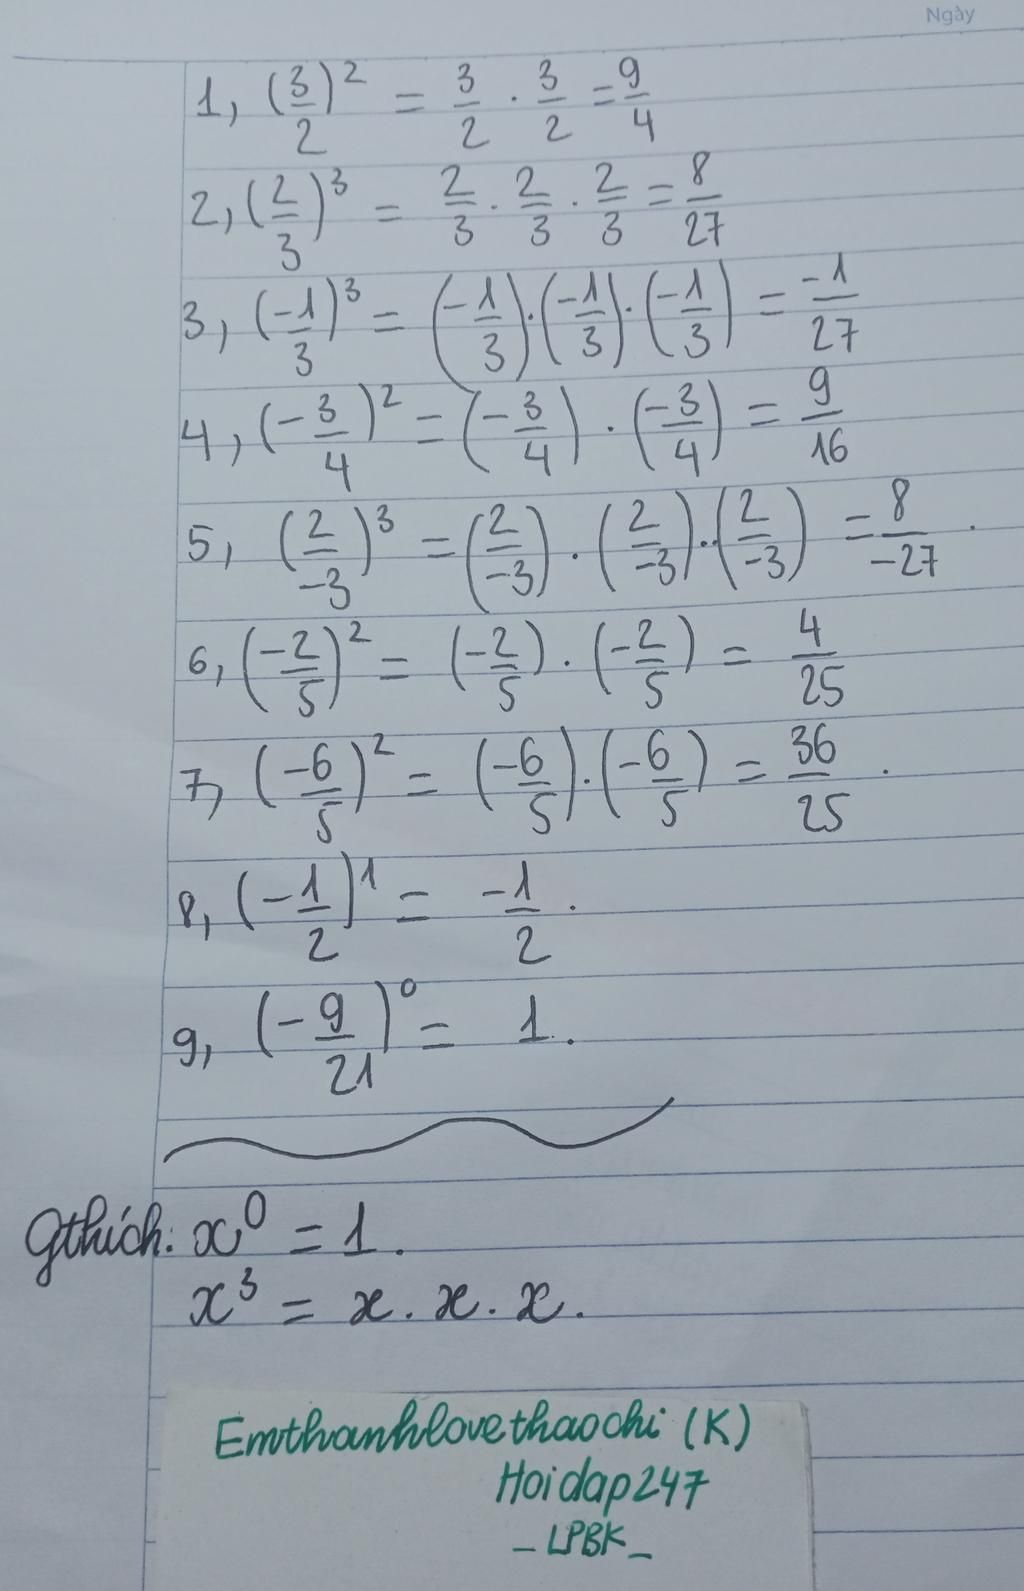 Ngày
1, (3/2)² = 3/2 . 3/2 = 9/4
2, (2/3)³ = 2/3 . 2/3 . 2/3 = 8/27
3, (-1/3)³ = (-1/3) . (-1/3) . (-1/3) = -1/27
4, (-3/4)² = (-3/4) . (-3/4) = 9/16
5, (2/-3)³ = (2/-3) . (2/-3) . (2/-3) = 8/-27 .
6, (-2/5)² = (-2/5) . (-2/5) = 4/25
7, (-6/5)² = (-6/5) . (-6/5) = 36/25 .
8, (-1/2)¹ = -1/2 .
9, (-9/21)⁰ = 1 .
Gthích: x⁰ = 1 .
x³ = x . x . x .
Emthanhlovethaochi (K)
Hoidap247
_ LPBK _